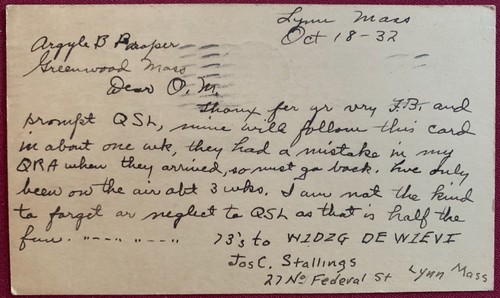 Lynn Mass
Oct 18-32
Argyle B Proper
Greenwood Mass
Dear O.M.
Thanx fer yr very F.B. and
prompt QSL, mine will follow this card
in about one wk, they had a mistake in my
QRA when they arrived, so must go back. Ive only
been on the air abt 3 wks. I am not the kind
to forget or neglect to QSL as that is half the
fun. "---" "---" 73's to W1DZG DE W1EVI
Jos C. Stallings
27 No Federal St Lynn Mass